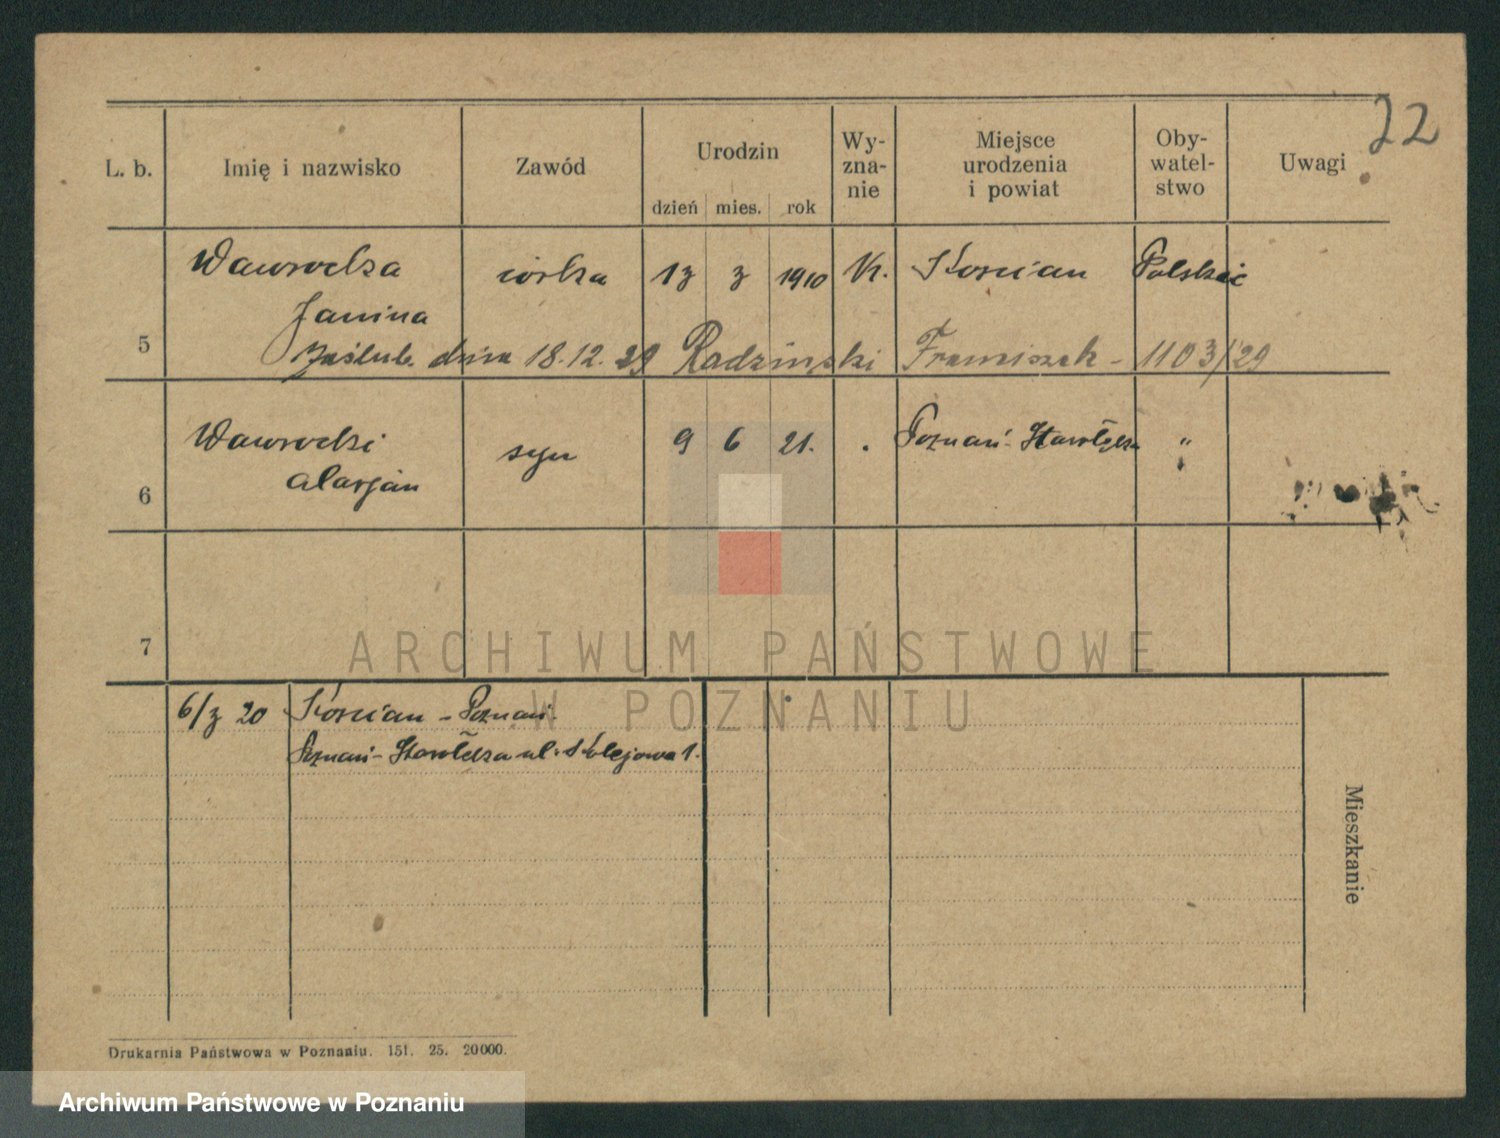 22
L. b. Imię i nazwisko Zawód Urodzin dzień mies. rok Wy-zna-nie Miejsce urodzenia i powiat Oby-watel-stwo Uwagi
5 Wawrocka córka 13 3 1910 K. Koscian Polskie
Janina
Zaślub. dnia 18.12.29 Radzinski Franciszek - 1103/29
6 Wawrocki syn 9 6 21. Poznań-Starołęka "
Marjan
7
6/3 20 Koscian - Poznań.
Poznań-Starołęka ul. Kolejowa 1.
Mieszkanie
Drukarnia Państwowa w Poznaniu. 151. 25. 20000.
ARCHIWUM PAŃSTWOWE
W POZNANIU
Archiwum Państwowe w Poznaniu